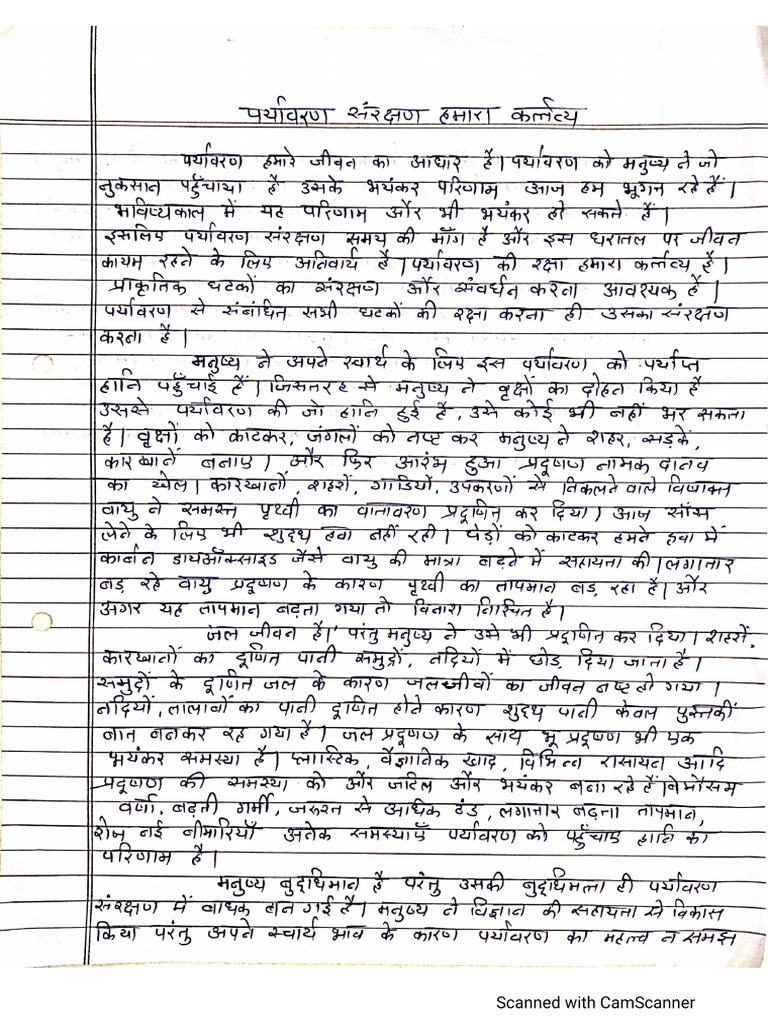 पर्यावरण संरक्षण हमारा कर्त्तव्य
पर्यावरण हमारे जीवन का आधार है। पर्यावरण को मनुष्य ने जो
नुकसान पहुँचाया है उसके भयंकर परिणाम आज हम भूगत रहे हैं।
भविष्यकाल में यह परिणाम और भी भयंकर हो सकते हैं।
इसलिए पर्यावरण संरक्षण समय की माँग है और इस धरातल पर जीवन
कायम रहने के लिए अतिवार्य है। पर्यावरण की रक्षा हमारा कर्त्तव्य है।
प्राकृतिक घटकों का संरक्षण और संवर्धन करना आवश्यक है।
पर्यावरण से संबंधित सभी घटकों की रक्षा करना ही उसका संरक्षण
करना है।
मनुष्य ने अपने स्वार्थ के लिए इस पर्यावरण को पर्याप्त
हानि पहुँचाई है। जिसतरह से मनुष्य ने वृक्षों का दोहन किया है
उससे पर्यावरण की जो हानि हुई है, उसे कोई भी नहीं भर सकता
है। वृक्षों को काटकर, जंगलों को नष्ट कर मनुष्य ने शहर, सड़कें,
कारखानें बनाए। और फिर आरंभ हुआ प्रदूषण नामक दानव
का खेल। कारखानों, शहरों, गाडियों, उपकरणों से निकलते वाले विषाक्त
वायु ने समस्त पृथ्वी का वातावरण प्रदूषित कर दिया। आज सांस
लेने के लिए भी शुद्ध हवा नहीं रही। पेड़ों को काटकर हमने हवा में
कार्बन डायऑक्साइड जैसे वायु की मात्रा बढ़ने में सहायता की। लगातार
बड़ रहे वायु प्रदूषण के कारण पृथ्वी का तापमान बड़ रहा है। और
अगर यह तापमान बढ़ता गया तो विनाश निश्चित है।
'जल जीवन है।' परंतु मनुष्य ने उसे भी प्रदूषित कर दिया। शहरों,
कारखानों का दूषित पानी समुद्रों, नदियों में छोड़ दिया जाता है।
समुद्रों के दूषित जल के कारण जलजीवों का जीवन नष्ट हो गया।
नदियों, तालाबों का पानी दूषित होने कारण शुद्ध पानी केवल पुस्तकीं
बात बनकर रह गया है। जल प्रदूषण के साथ भू प्रदूषण भी एक
भयंकर समस्या है। प्लास्टिक, वैज्ञानिक खाद, विभिन्न रासायन आदि
प्रदूषण की समस्या को और जटिल और भयंकर बना रहे हैं। बेमौसम
वर्षा, बढ़ती गर्मी, जरुरत से अधिक ठंड, लगातार बढ़ता तापमान,
रोज़ नई बीमारियाँ अनेक समस्याएँ पर्यावरण को पहुँचाए हानि का
परिणाम है।
मनुष्य बुद्धिमान है परंतु उसकी बुद्धिमत्ता ही पर्यावरण
संरक्षण में बाधक बन गई है। मनुष्य ने विज्ञान की सहायता से विकास
किया परंतु अपने स्वार्थ भाव के कारण पर्यावरण का महत्व न समझ
Scanned with CamScanner